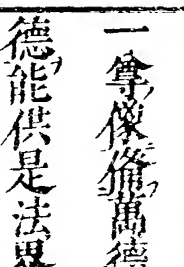 一尊像俻萬德
德能供是法界